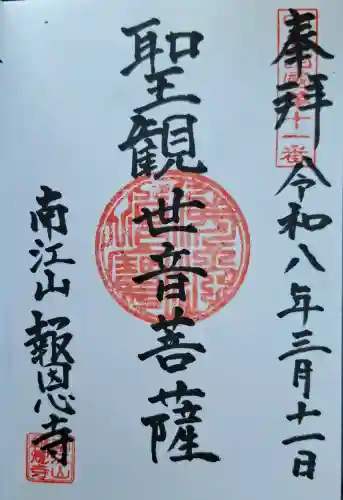 奉拝
令和八年三月十一日
聖観世音菩薩
南江山報恩寺